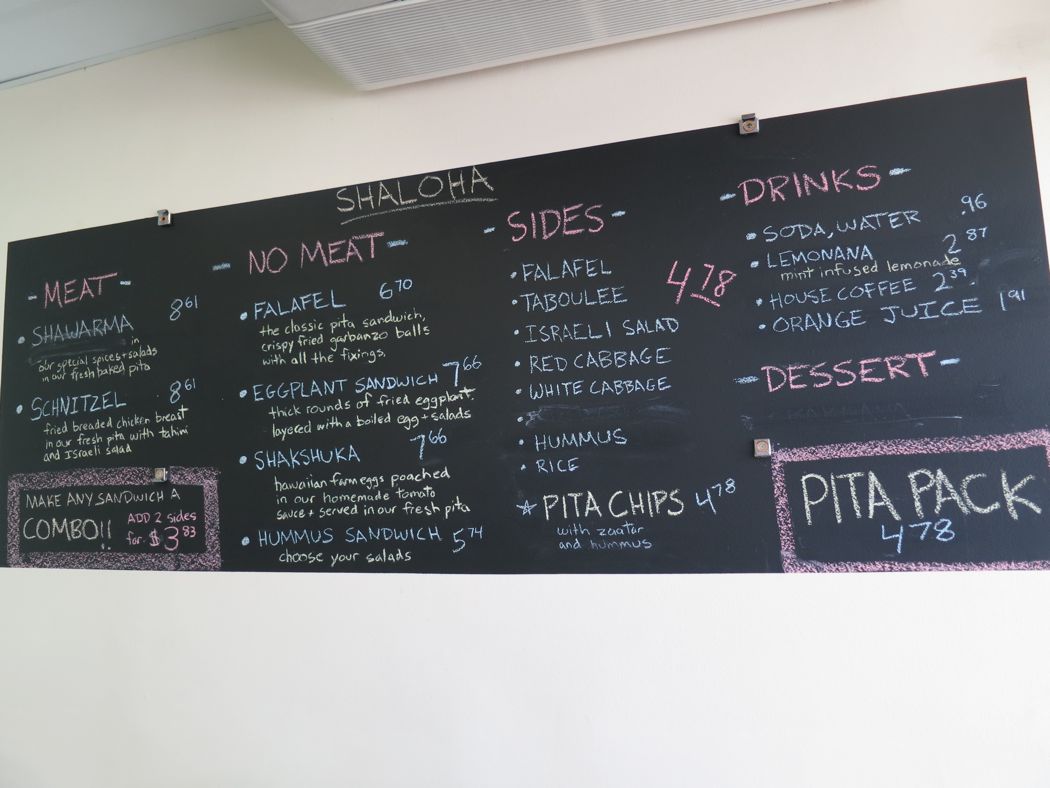 SHALOHA
- MEAT -
• SHAWARMA 8 61
in
our special spices + salads
in our fresh baked pita
• SCHNITZEL 8 61
fried breaded chicken breast
in our fresh pita with tahini
and Israeli salad
MAKE ANY SANDWICH A
COMBO!!
ADD 2 sides
for $3 83
- NO MEAT -
• FALAFEL 6 70
the classic pita sandwich,
crispy fried garbanzo balls
with all the fixings.
• EGGPLANT SANDWICH 7 66
thick rounds of fried eggplant,
layered with a boiled egg + salads
• SHAKSHUKA 7 66
hawaiian farm eggs poached
in our homemade tomato
sauce + served in our fresh pita
• HUMMUS SANDWICH 5 74
choose your salads
- SIDES -
4 78
• FALAFEL
• TABOULEE
• ISRAELI SALAD
• RED CABBAGE
• WHITE CABBAGE
• HUMMUS
• RICE
☆ PITA CHIPS 4 78
with zaatar
and hummus
- DRINKS -
• SODA, WATER .96
• LEMONANA 2 87
mint infused lemonade
• HOUSE COFFEE 2 39.
• ORANGE JUICE 1 91
- DESSERT -
PITA PACK
4 78